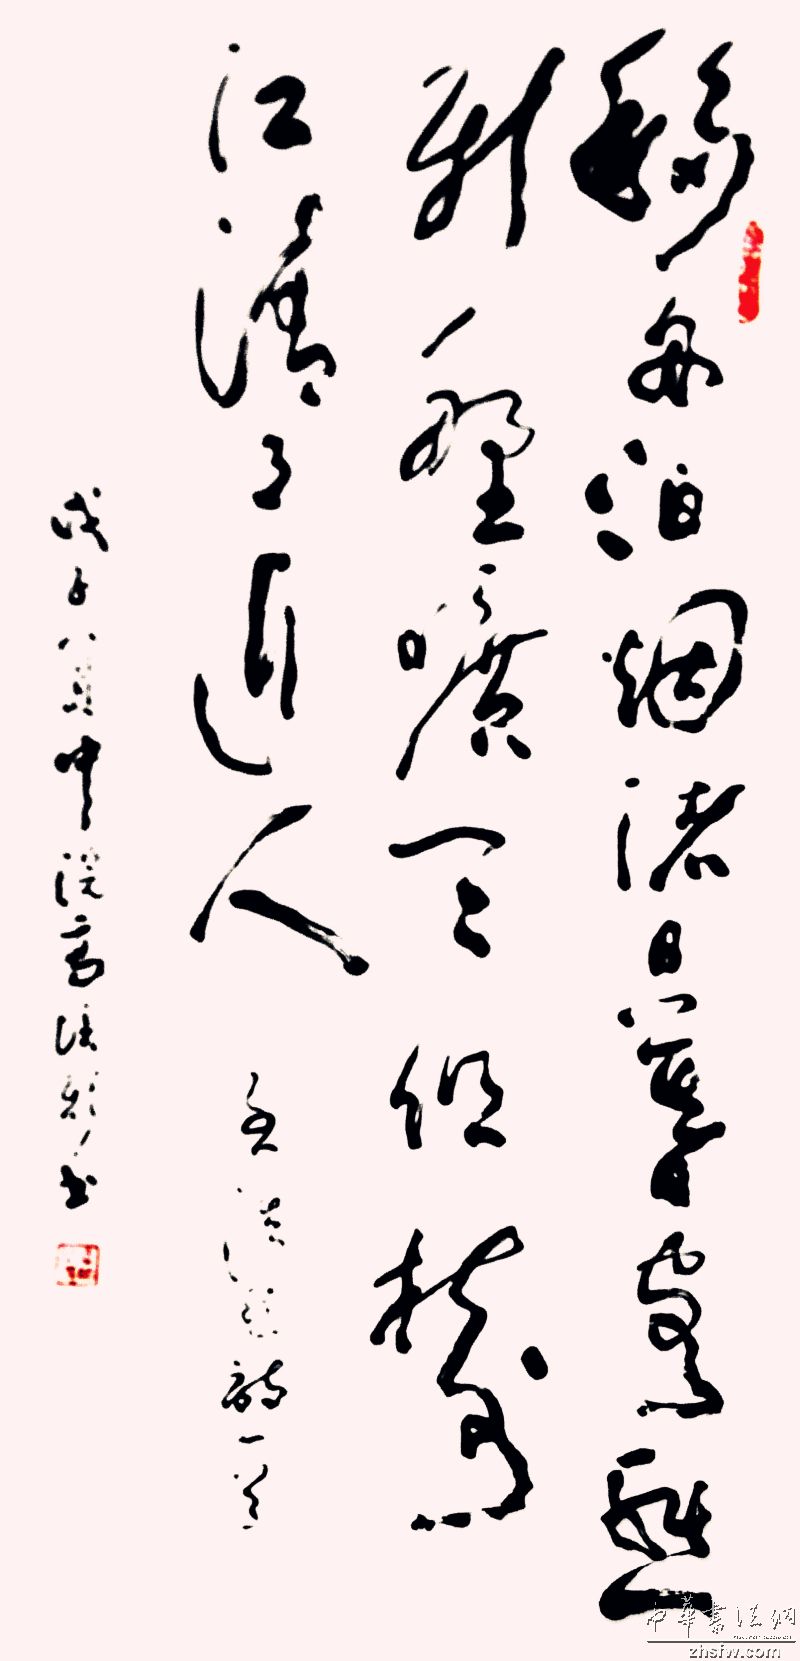 移舟泊烟渚日暮客愁
新野曠天低樹
江清月近人 孟浩然詩一首
戊子八月中浣
中華書法網
zhsfw.com